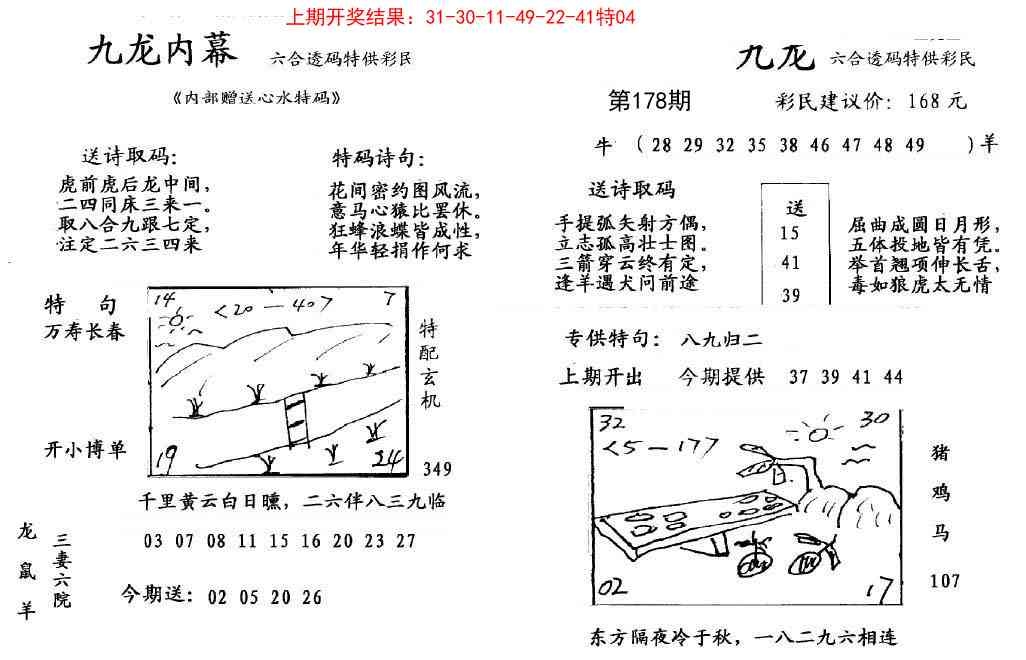 上期开奖结果：31-30-11-49-22-41特04
九龙内幕 六合透码特供彩民
《内部赠送心水特码》
送诗取码：
虎前虎后龙中间，
二四同床三来一。
取八合九跟七定，
注定二六三四来
特码诗句：
花间密约图风流，
意马心猿比罢休。
狂蜂浪蝶皆成性，
年华轻捐作何求
特 句
万寿长春
开小博单
14
7
<20—40>
19
24
特配玄机
349
千里黄云白日曛，二六伴八三九临
龙鼠羊
三妻六院
03 07 08 11 15 16 20 23 27
今期送：02 05 20 26
九龙 六合透码特供彩民
第178期 彩民建议价：168元
牛（28 29 32 35 38 46 47 48 49 ）羊
送诗取码
手提弧矢射方偶，
立志孤高壮士图。
三箭穿云终有定，
逢羊遇犬问前途
送
15
41
39
屈曲成圆日月形，
五体投地皆有凭。
举首翘项伸长舌，
毒如狼虎太无情
专供特句： 八九归二
上期开出 今期提供 37 39 41 44
32
30
<5—17>
02
17
猪
鸡
马
107
东方隔夜冷于秋，一八二九六相连